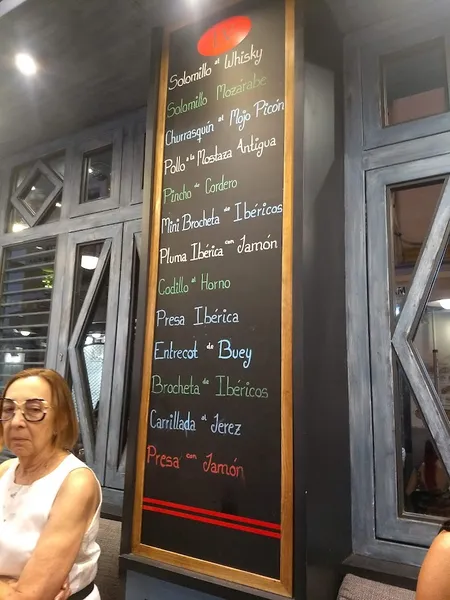 Solomillo al Whisky
Solomillo Mozárabe
Churrasquín al Mojo Picón
Pollo a la Mostaza Antigua
Pincho de Cordero
Mini Brocheta de Ibéricos
Pluma Ibérica con Jamón
Codillo al Horno
Presa Ibérica
Entrecot de Buey
Brocheta de Ibéricos
Carrillada al Jerez
Presa con Jamón